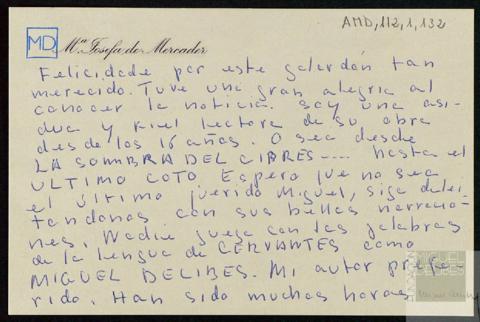 AMD,112,1,132
MD
Mª Josefa de Mercader
Felicidade por este galardón tan
merecido. Tuve una gran alegria al
conocer la noticia. Soy una asi-
dua y fiel lectora de su obra
desde los 16 años. O sea desde
LA SOMBRA DEL CIPRES---- hasta el
ULTIMO COTO Espero que no sea
el último querido Miguel, siga delei-
tandonos con sus bellas narracio-
nes. Nadie juega con las palabras
de la lengua de CERVANTES como
MIGUEL DELIBES. Mi autor prefe-
rido. Han sido muchas horas